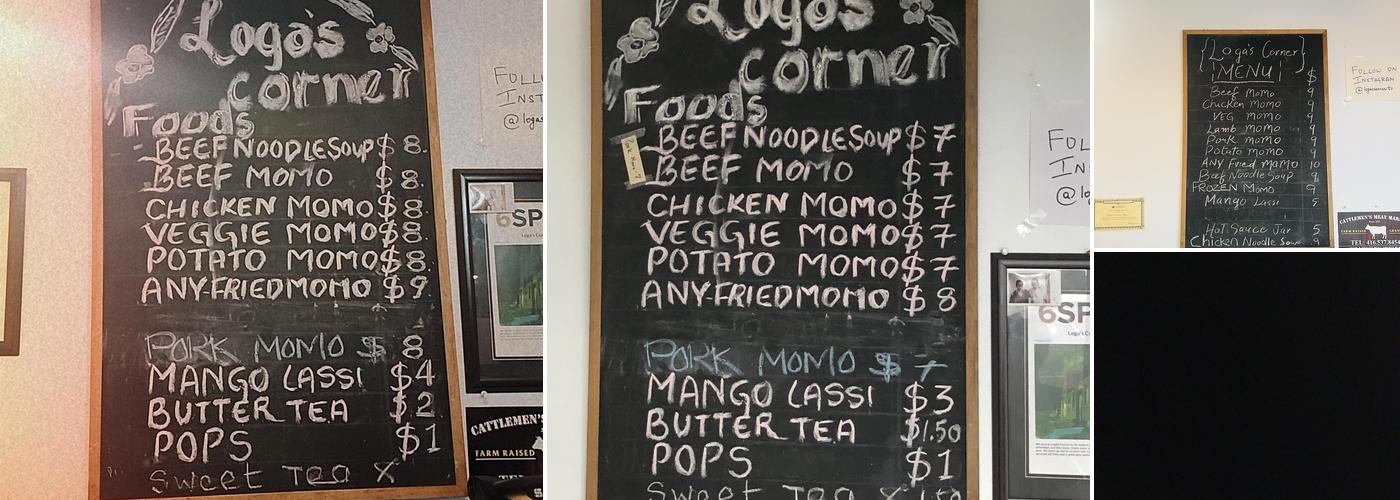 Loga's
corner
Foods
BEEF NOODLE SOUP $ 8.
BEEF MOMO $ 8.
CHICKEN MOMO $ 8.
VEGGIE MOMO $ 8.
POTATO MOMO $ 8.
ANY FRIED MOMO $ 9
PORK MOMO $ 8
MANGO LASSI $ 4
BUTTER TEA $ 2
POPS $ 1
Sweet Tea X
FOLL
INST
@ logas
6SP
Loga's C
CATTLEMEN'S
FARM RAISED
Loga's
corner
Foods
BEEF NOODLE SOUP $ 7
BEEF MOMO $ 7
CHICKEN MOMO $ 7
VEGGIE MOMO $ 7
POTATO MOMO $ 7
ANY FRIED MOMO $ 8
PORK MOMO $ 7
MANGO LASSI $ 3
BUTTER TEA $ 1.50
POPS $ 1
Sweet Tea
FOL
IN
@ lo
6SP
Loga's Co
{Loga's Corner}
MENU $
Beef Momo 9
Chicken Momo 9
VEG momo 9
Lamb momo 9
Pork momo 9
Potato momo 9
ANY Fried MOMO 10
Beef Noodle Soup 9
FROZEN Momo 9
Mango Lassi 5
Hot Sauce Jar 5
Chicken Noodle Soup 9
FOLLOW ON
INSTAGRAM
CATTLEMEN'S MEAT MAR
FARM RAISED